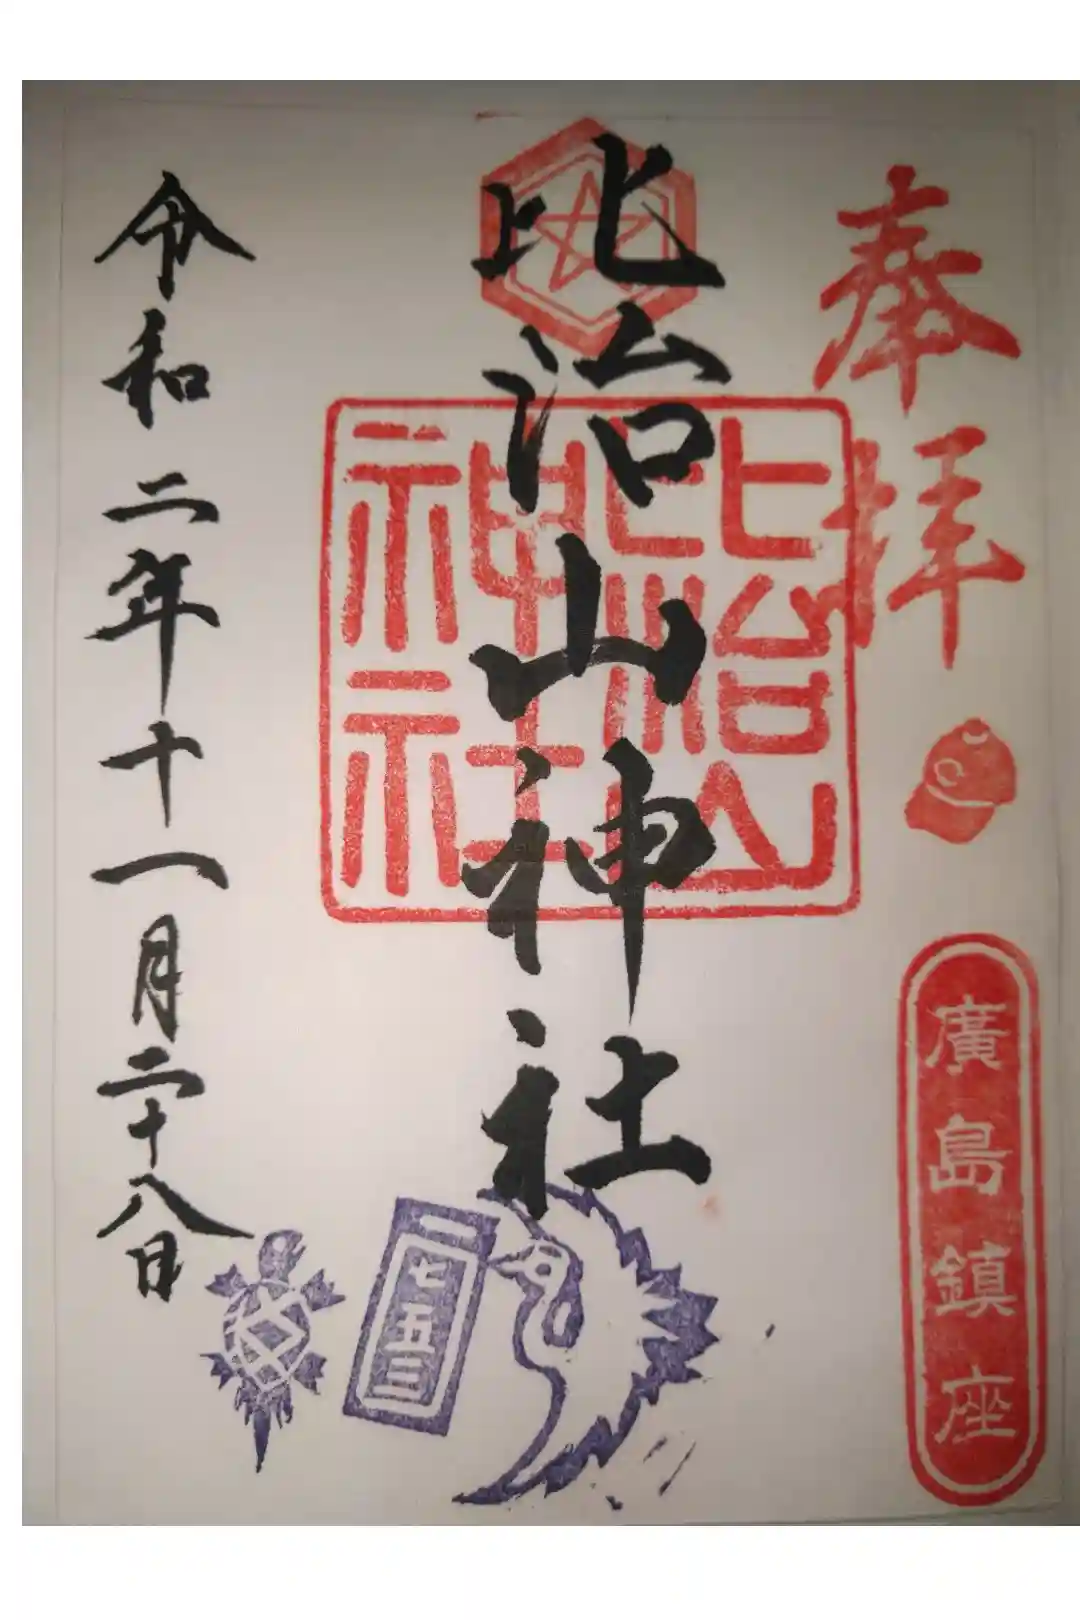 奉拝
廣島鎮座
比治山神社
比治山比治山神社
七五三
令和二年十一月二十八日